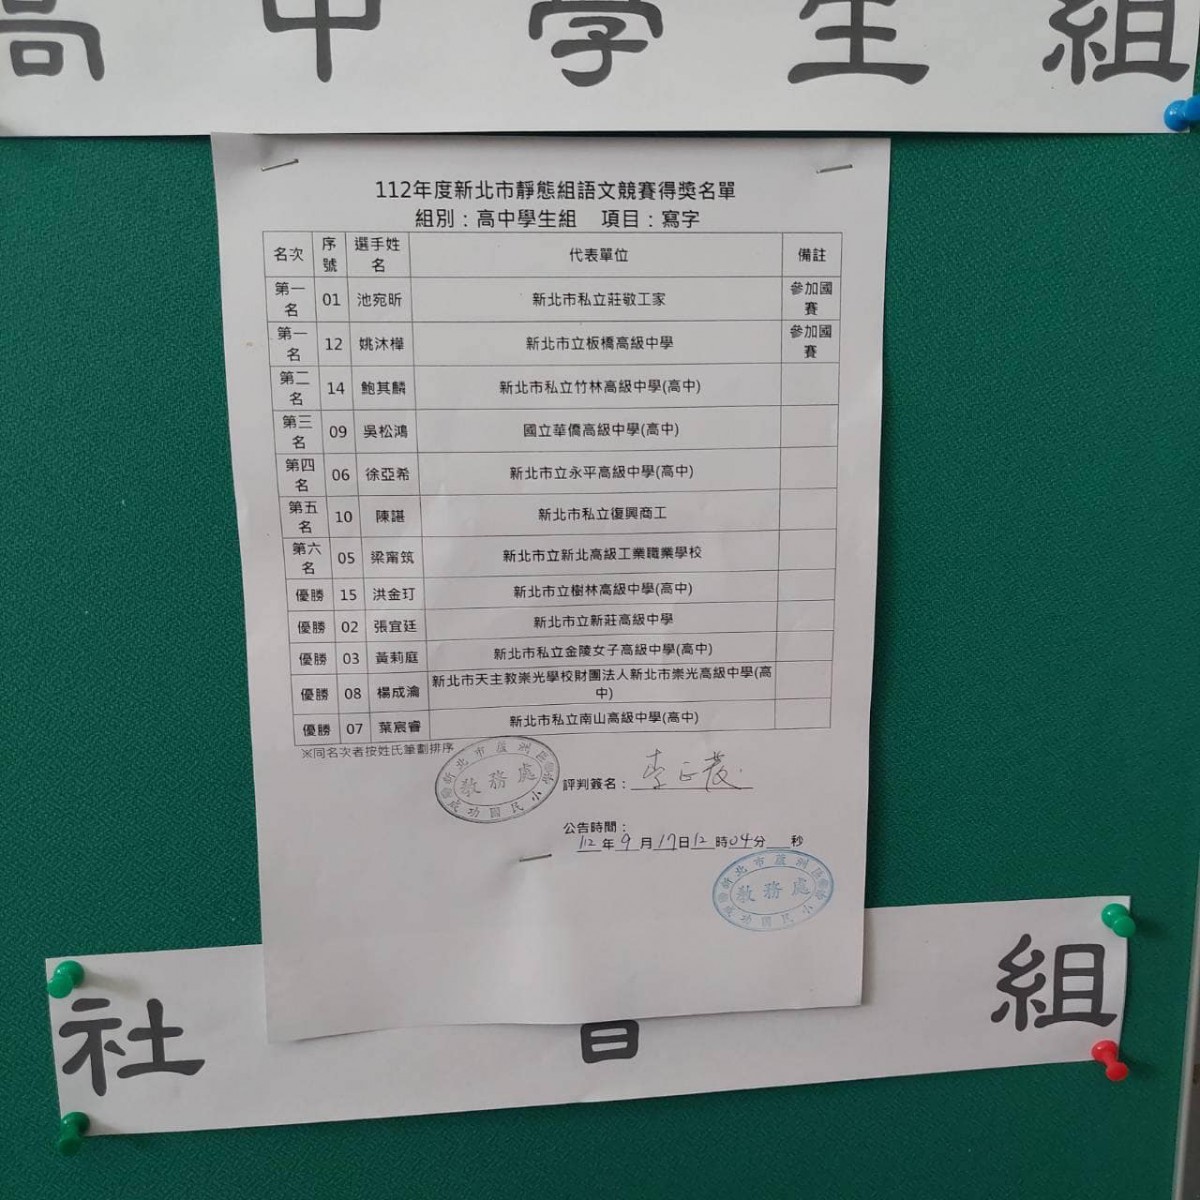 高中學生組
112年度新北市靜態組語文競賽得獎名單
組別：高中學生組 項目：寫字
名次 序號 選手姓名 代表單位 備註
第一名 01 池宛昕 新北市私立莊敬工家 參加國賽
第一名 12 姚沐樺 新北市立板橋高級中學 參加國賽
第二名 14 鮑其麟 新北市私立竹林高級中學(高中)
第三名 09 吳松鴻 國立華僑高級中學(高中)
第四名 06 徐亞希 新北市立永平高級中學(高中)
第五名 10 陳諶 新北市私立復興商工
第六名 05 梁甯筑 新北市立新北高級工業職業學校
優勝 15 洪金玎 新北市立樹林高級中學(高中)
優勝 02 張宜廷 新北市立新莊高級中學
優勝 03 黃莉庭 新北市私立金陵女子高級中學(高中)
優勝 08 楊成瀹 新北市天主教崇光學校財團法人新北市崇光高級中學(高中)
優勝 07 葉宸睿 新北市私立南山高級中學(高中)
※同名次者按姓氏筆劃排序
教務處
評判簽名：
公告時間：
112年9月17日12時04分 秒
教務處
社 組